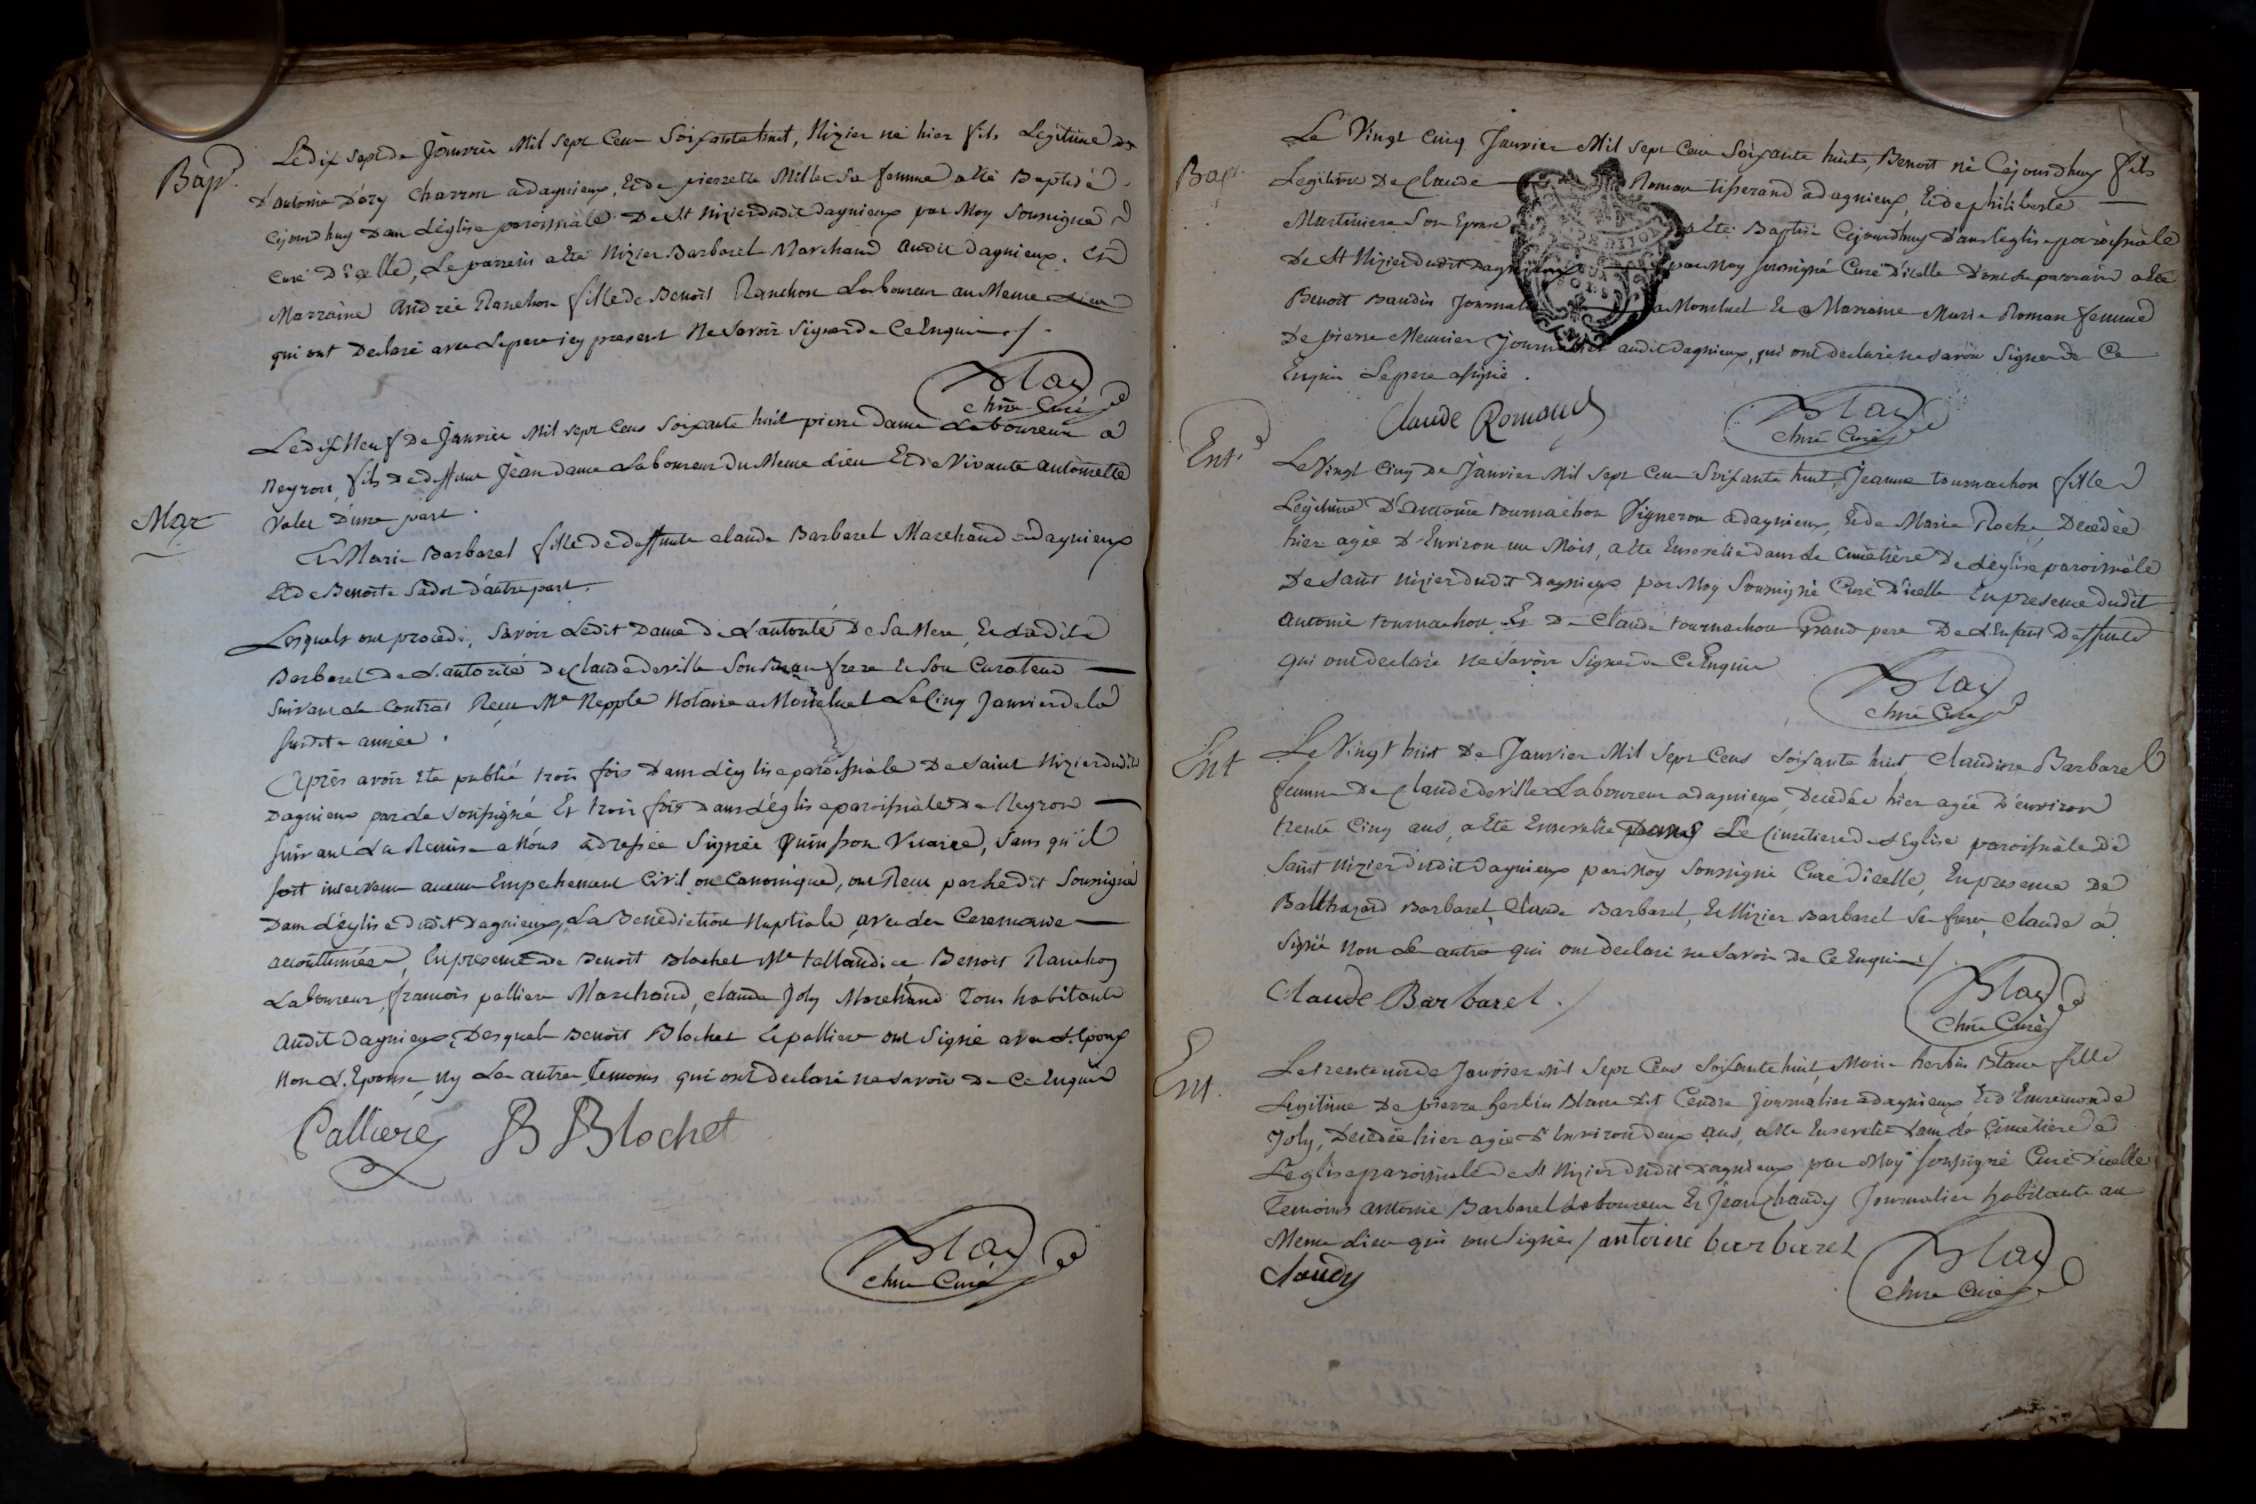 Bap.
Le dix sept de Janvier Mil sept Cens Soixante huit, Nizier né hier fils Legitime
D'antoine Dory Charron a dagnieux, et de pierrette Millet sa femme a été Baptisé
Cejourdhuy Dans L'église paroissiale De St Nizier dudit dagnieux par Moy Soussigné
Curé D'icelle, Le parrein a été Nizier Barbarel Marchand audit dagnieux. Et
Marraine andrée Ranchon fille de Benoit Ranchon Laboureur au Meme Lieu
qui ont Declaré avec Le pere icy present Ne Savoir Signer de Ce Enquis /.
Blay
chne Curé
Mar
Le dix Neuf De Janvier Mil sept Cens Soixante huit pierre dame Laboureur a
Neyron, fils De deffunt Jean dame Laboureur du Meme Lieu Et de Vivante antoinette
Valet D'une part.
Et Marie Barbarel fille de deffunt claude Barbarel Marchand a Dagnieux
Et de Benoite Sadot d'autre part.
Lesquels ont procedé, Savoir Ledit Dame de L'autorité De Sa Mere, Et Ladite
Barbarel de L'autorité de Claude deville Son Beau frere Et Son Curateur
Suivant Le Contrat Recu Me Nepple Notaire a Montluel Le Cinq Janvier de la
susdite année.
Après avoir Eté publié trois fois Dans L'église paroissiale De Saint Nizier dudit
Dagnieux par Le Soussigné Et trois fois dans L'église paroissiale de Neyron
suivant La Remise a Nous adressée Signée Quinson Vicaire, Sans qu'il
soit intervenu aucun Empechement Civil ou Canonique, ont Recu par Ledit Soussigné
Dans L'église dudit Dagnieux, La Benediction Nuptiale avec Les Ceremonie
accoutumées, En presence de Benoit Blochet Me tallandier, Benoit Ranchon
Laboureur, francois palliere Marchand, claude Joly Marchand Tous habitants
audit dagnieux, Desquels Benoit Blochet Et palliere ont Signé avec L'Epoux
Non L'Epouse, Ny Les autres temoins qui ont declaré ne savoir De Ce Enquis
Palliere B Blochet
Blay
chne Curé
Bap.
Le Vingt Cinq Janvier Mil Sept Cens Soixante huit, Benoit né Cejourdhuy fils
Legitime De Claude Roman tisserand a dagnieux, Et de philiberte
Martiniere Son Epouse a été Baptisé Cejourdhuy dans L'eglise paroissiale
De St Nizier dudit Dagnieux par Moy soussigné Curé D'icelle Dont Le parrain a été
Benoit Baudin Journalier a Montluel Et Marraine Marie Roman femme
De pierre Meunier Journalier audit Dagnieux, qui ont declaré ne savoir Signer de Ce
Enquis Le pere a signé.
Claude Romand
Blay
chne Curé
Ent.
Le Vingt Cinq de Janvier Mil Sept Cens Soixante huit, Jeanne tournachon fille
Légitime D'Antoine tournachon Vigneron a dagnieux, Et de Marie Roche, Decedée
hier agée D'Environ un Mois, a été Ensevelie dans Le Cimetiere De L'église paroissiale
De Saint Nizier dudit Dagnieux par Moy Soussigné Curé D'icelle En presence dudit
antoine tournachon Et De Claude tournachon Grand pere De L'Enfant Deffunte
qui ont declaré ne Savoir Signer De Ce Enquis
Blay
chne Curé
Ent
Le Vingt huit De Janvier Mil Sept Cens Soixante huit, Claudine Barbarel
femme De Claude deville Laboureur a dagnieux, Decedée hier agée D'environ
trente Cinq ans, a été Ensevelie Dans Le Cimetiere de L'Eglise paroissiale de
Saint Nizier dudit Dagnieux par Moy Soussigné Curé D'icelle, En presence De
Balthazard Barbarel, Claude Barbarel, Et Nizier Barbarel Ses freres, Claude a
Signé Non Les autres qui ont declaré ne Savoir De Ce Enquis /.
Claude Barbarel.
Blay
chne Curé
Ent.
Le trente un de Janvier Mil Sept Cens Soixante huit, Marie herbin Blanc fille
Legitime De pierre herbin Blanc dit Cendre Journalier a dagnieux Et D'Enremonde
Joly, Decedée hier agée d'Environ deux ans, a été Ensevelie dans Le Cimetiere de
L'eglise paroissiale de St Nizier dudit Dagnieux par Moy soussigné Curé D'icelle
Temoins antoine Barbarel Laboureur Et Jean Chaudy Journalier habitants au
Meme Lieu qui ont Signés / antoine barbarel
Chaudy
Blay
chne Curé